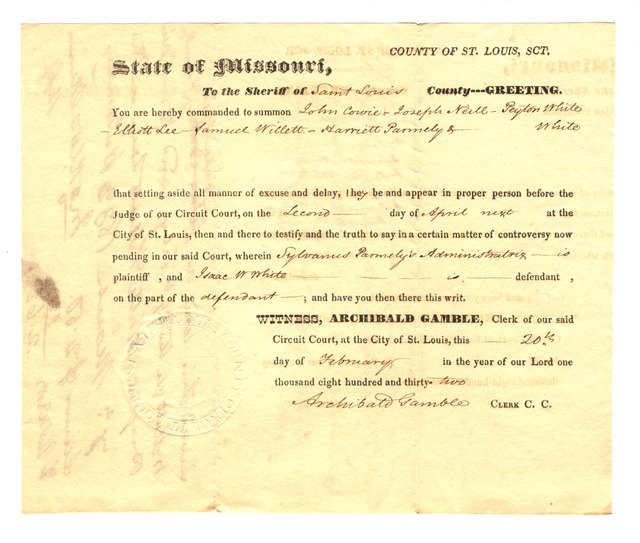 COUNTY OF ST. LOUIS, SCT.
State of Missouri,
To the Sheriff of Saint Louis County---GREETING.
You are hereby commanded to summon John Cowie - Joseph Neill - Peyton White
- Elliott Lee - Samuel Willett - Harriett Parmely & White
that setting aside all manner of excuse and delay, they be and appear in proper person before the
Judge of our Circuit Court, on the Second day of April next at the
City of St. Louis, then and there to testify and the truth to say in a certain matter of controversy now
pending in our said Court, wherein Sylvanus Parmely's Administratrix - is
plaintiff , and Isaac W White is defendant ,
on the part of the defendant ; and have you then there this writ.
WITNESS, ARCHIBALD GAMBLE, Clerk of our said
Circuit Court, at the City of St. Louis, this 20th
day of February in the year of our Lord one
thousand eight hundred and thirty-two
Archibald Gamble CLERK C. C.